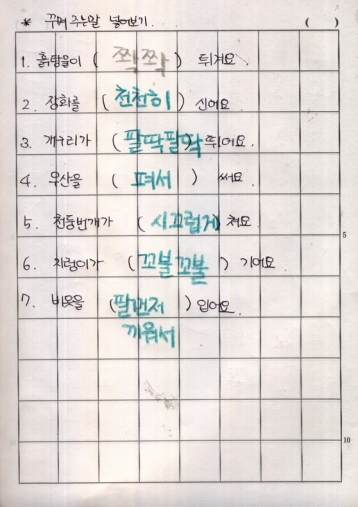 * 꾸며 주는 말 넣어보기. ( )
1. 흙탕물이 ( 쫙쫙 ) 튀겨요.
2. 장화를 ( 천천히 ) 신어요.
3. 개구리가 ( 팔딱팔딱 ) 뛰어요.
4. 우산을 ( 펴서 ) 써요.
5. 천둥번개가 ( 시끄럽게 ) 쳐요
5
6. 지렁이가 ( 꼬불꼬불 ) 기어요.
7. 비옷을 ( 팔먼저 ) 입어요.
끼워서
10